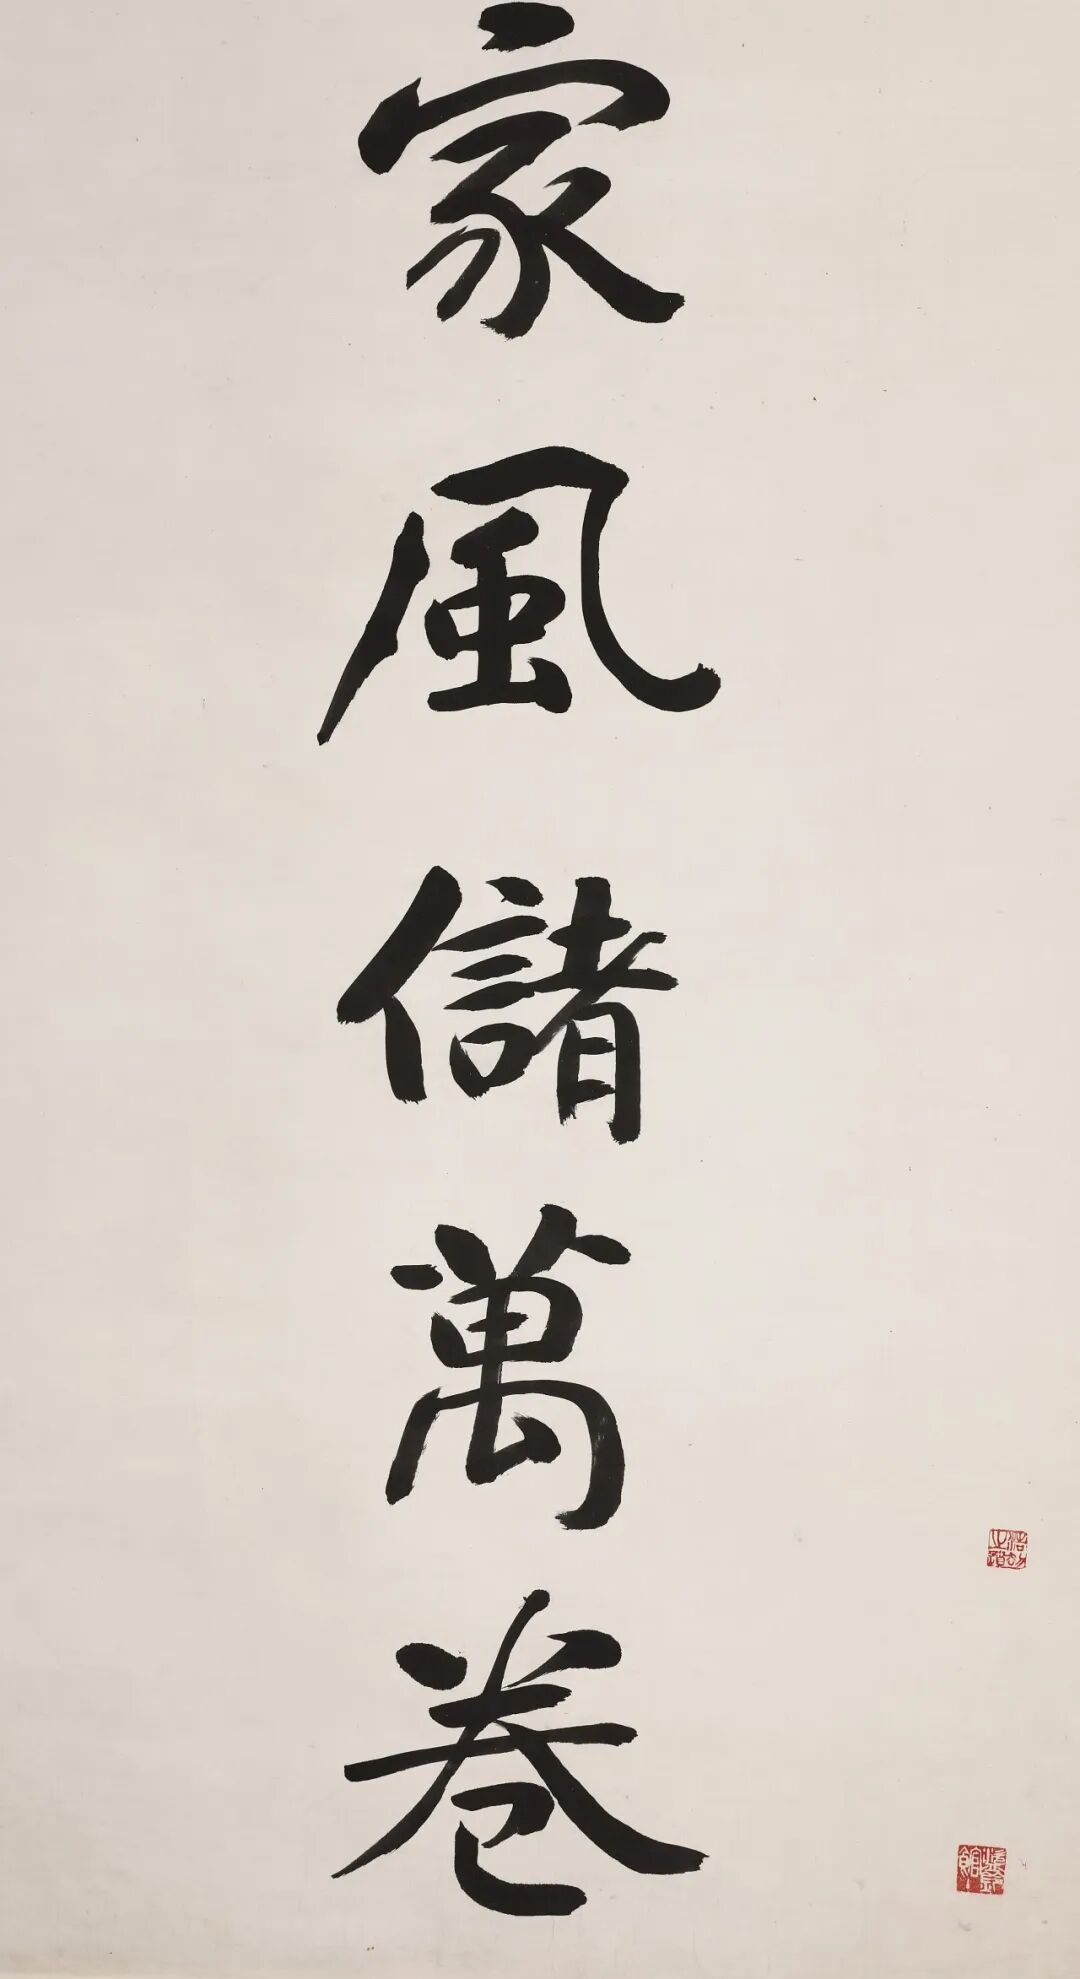 家風儲萬卷